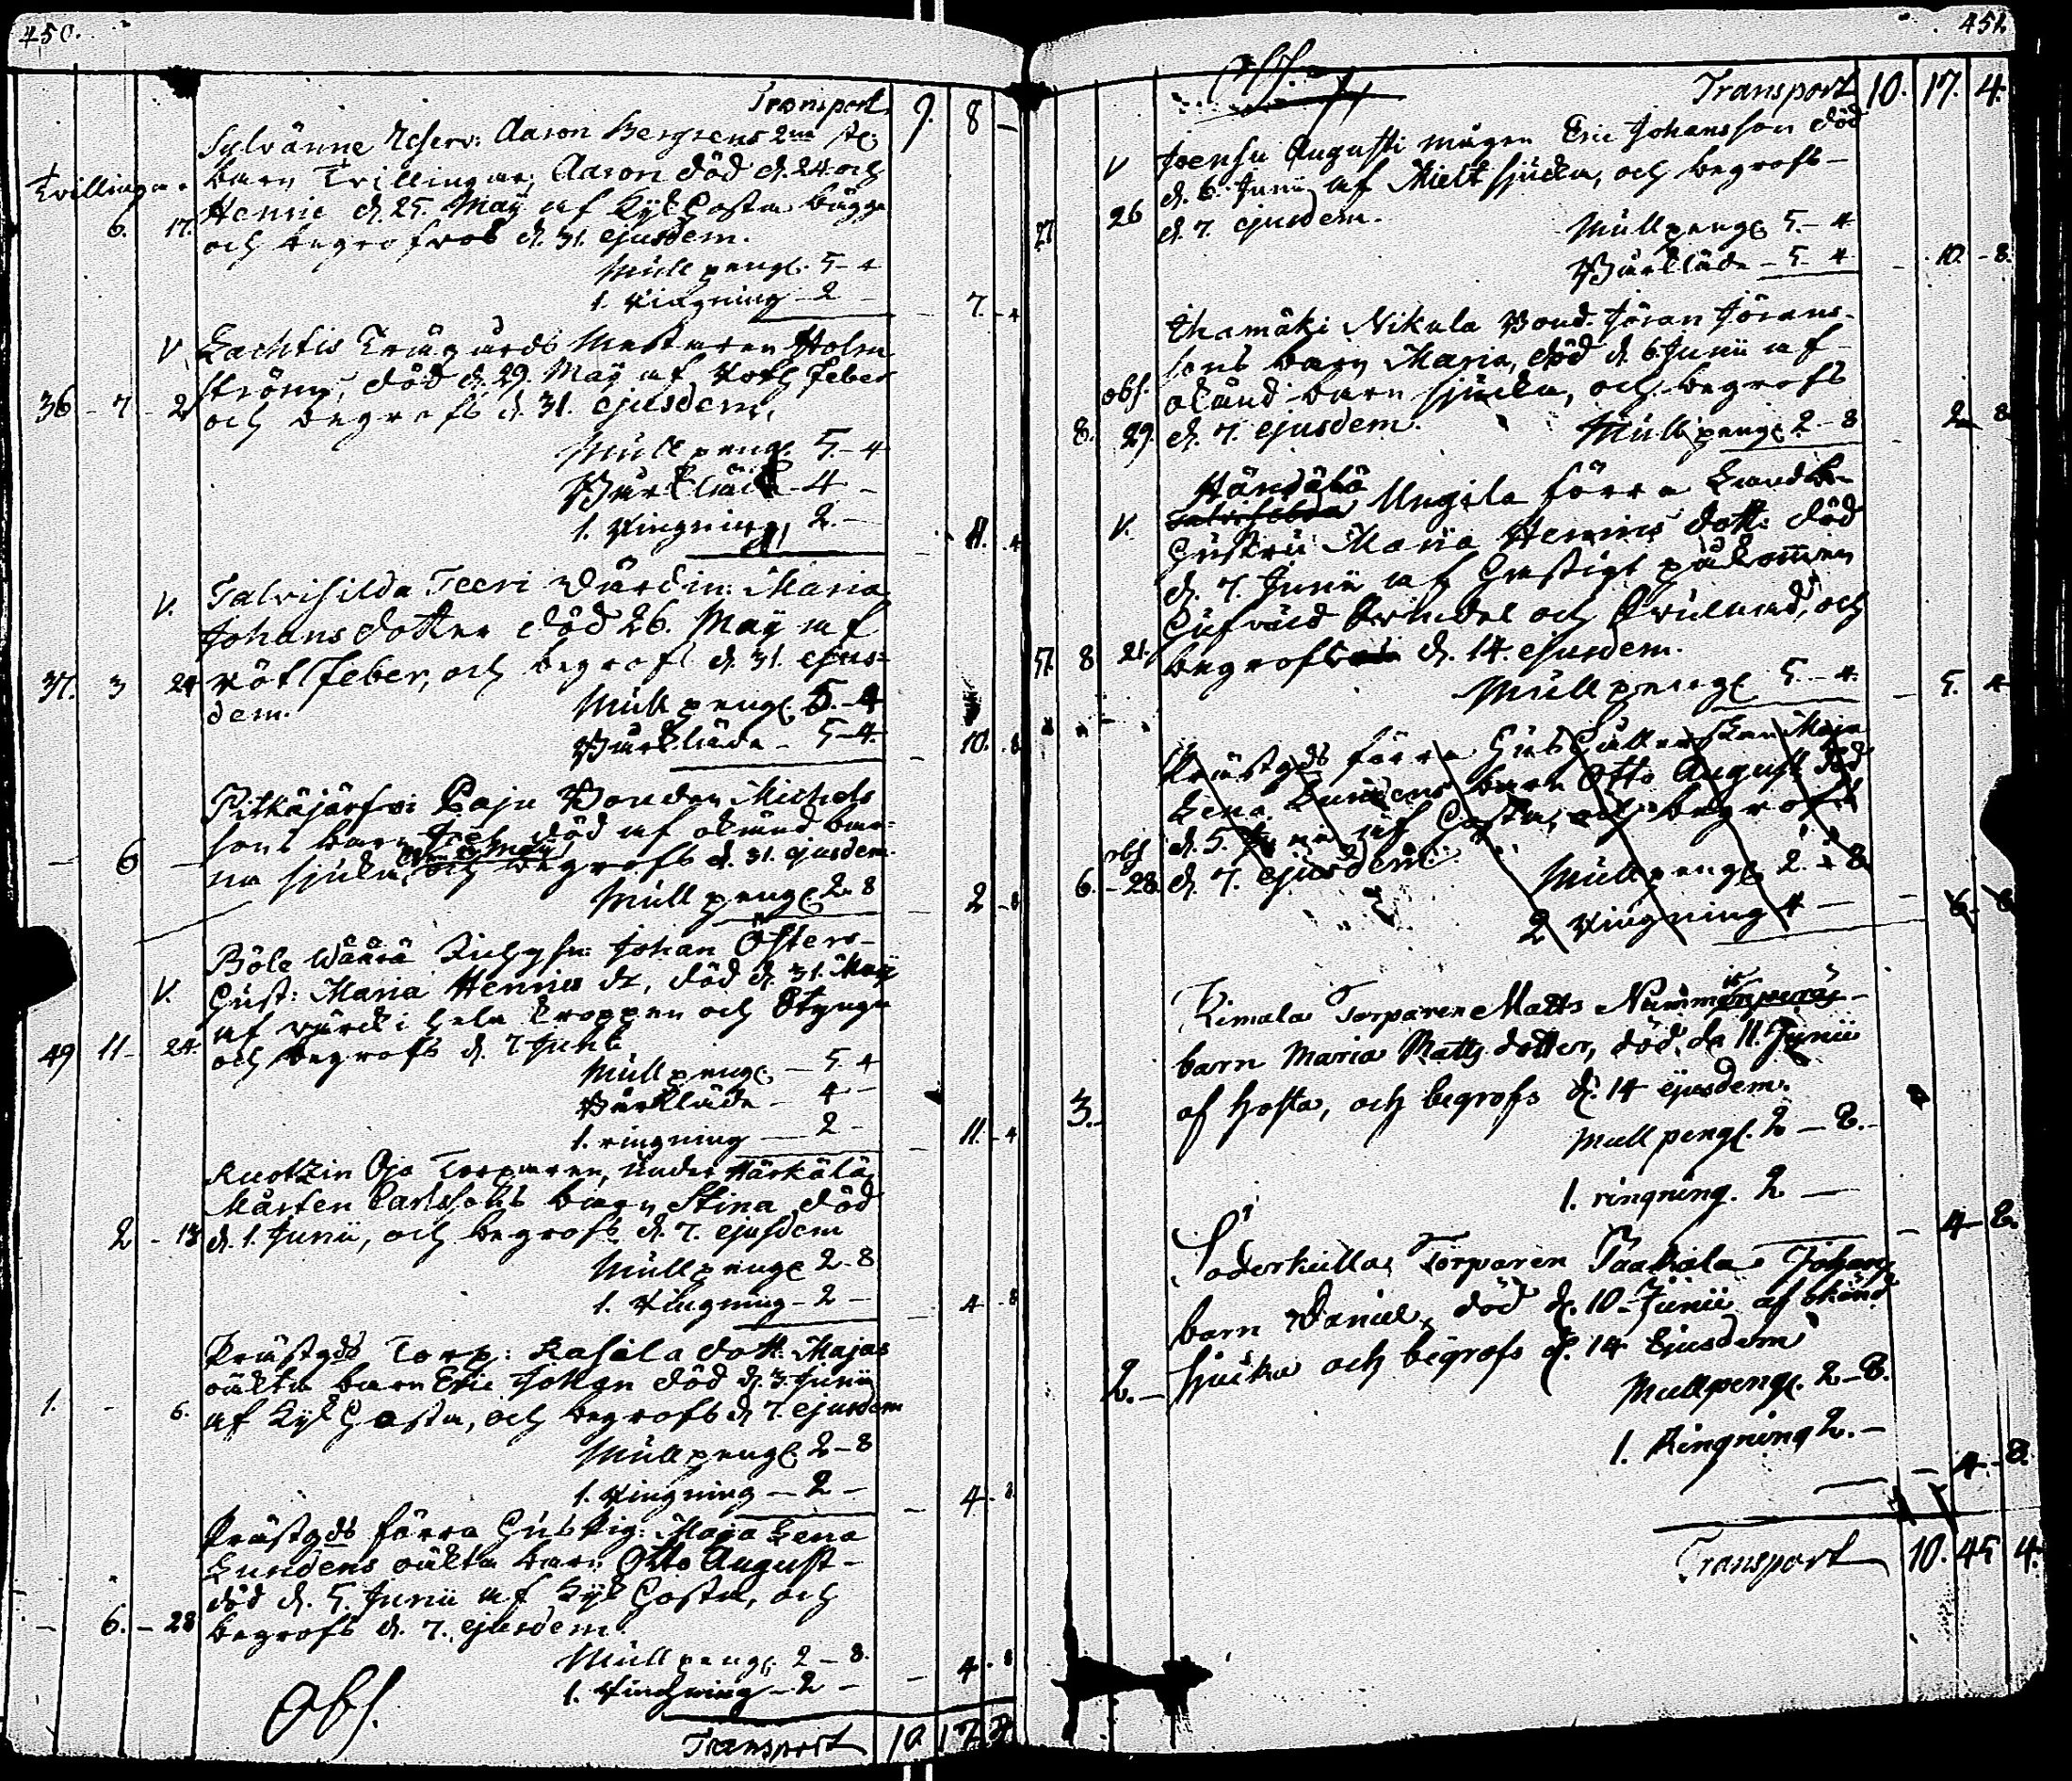 450.
Transport 9. 8 –
Sylvänne Reserv: Aaron Bergrens 2ne st:
Tvillingar. barn Tvillingar, Aaron död d. 24 och
Henric d. 25. Maÿ af Kyk Hosta bägge
6. 17. och begrofvos d. 31. ejusdem.
Mull peng. 5 – 4
1. Ringning – 2 – – 7. – 4
V Lachtis Trägårds Mästaren Holm
ström, död d. 29. Maÿ af Röth feber
36 – 7 – 2 och begrofs d. 31. ejusdem.
Mull peng. 5. – 4
Bårkläde – 4 –
1. Ringning, 2. – – 11. 4
V. Talvisilda Teeri Värdin: Maria
Johansdotter död 26. Maÿ af
37. 3 24 rötfeber, och begrofs d. 31. ejus-
dem. Mull peng. 5. – 4
Bårkläde – 5 – 4. – 10. 8
Pitkäjärfvi Paju Bonden Michels
sons barn död af okänd bar-
– 6 – na sjuka, och begrofs d. 31. ejusdem.
Mull peng. 2 – 8 – 2 – 8
Böle Wäärä Johan Östers-
V. Hust: Maria Henrics dr, död d. 31. Maÿ
af värck i hela kroppen och Stynga
49 11 – 24. och begrofs d. 7 Junii
Mull peng. – 5 4
Bårkläde – 4 –
1. ringning – 2 – – 11. – 4
Ruotzin Oja Torparen, under Härkälä
Mårten Carlssons barn Stina död
2 – 13 d. 1. Junii, och begrofs d. 7. ejusdem
Mull peng. 2 – 8
1. Ringning – 2 – – 4 – 8
Prästgds Torp: Rasala dott: Majas
oäkta barn Eric Johan död d. 3. Junii
1. – 6. af Kyk Hosta, och begrofs d. 7. ejusdem
Mull peng. 2 – 8
1. Ringning – 2 – – 4 – 8
Prästgds förra Maja Lena
Lundens oäkta barn Otto August –
död d. 5. Junii af Kyk Hosta, och
– 6. – 28 begrofs d. 7. ejusdem.
Mull peng. 2 – 8.
1. Ringning – 2 – – 4. – 8
Obs.
Transport 10 17 4
451.
Obs.
Transport 10. 17. 4.
V Joensu Augusti mågen Eric Johansson död
d. 6. Junii af Mielt sjuka, och begrofs –
27 26 d. 7. ejusdem.
Mull peng. 5. – 4
Bårkläde – 5 – 4 – 10. – 8.
Ihamäki Nikula Bond. Jöran Jörans-
sons barn Maria, död d. 6. Junii af
obs. okänd barn sjuka, och begrofs
8. 29. d. 7. ejusdem. Mull peng. 2 – 8 – 2 8
Händälä
V. Talvisilda Ungila förra Landbo
Hustru Maria Henrics dott: död
d. 7. Junii af Hastigt påkommen
Hufvud och och
57. 8 21. begrofs d. 14. ejusdem.
Mull peng. 5 – 4. – 5. 4
Prästgds förra Maja
Lena Lundens barn Otto August död
obs d. 5. Junii af Hosta, och begrofs
6. – 28. d. 7. ejusdem.
Mull peng. 2. – 8
2 Ringning 4 – – 6 – 8
Kimala Torparen Matts
barn Maria Matts dotter, död, da 11. Junii
3. – af hosta, och begrofs d. 14 ejusdem.
Mull peng. 2 – 8. –
1. ringning. 2 –
– 4 – 8.
Söderkulla Torparen Taakala Johans
barn Daniel, död d. 10 Junii af okänd
2. – sjuka och begrofs d. 14 Ejusdem
Mull peng. 2 – 8.
1. Ringning 2. –
– 4. – 8.
Transport 10. 45 4.